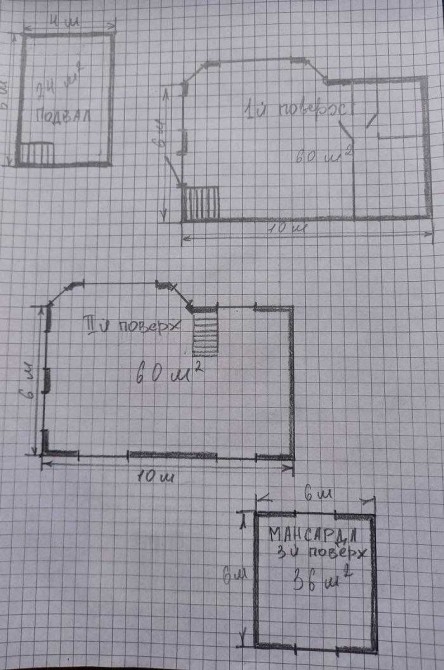 4 м
24 м²
ПОДВАЛ
1й поверх
6 м
60 м²
10 м
IIй поверх
60 м²
6 м
10 м
6 м
МАНСАРДА
3й поверх
6м
36 м²